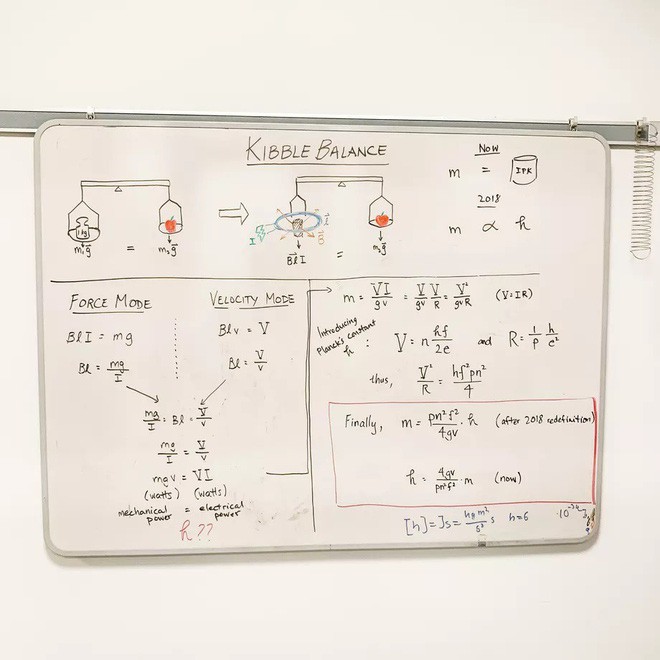 KIBBLE BALANCE
Now
m = IPK
2018
m ∝ h
1 kg
m₁g⃗ = m₂g⃗
I
l⃗
B⃗
B⃗lI = m₂g⃗
FORCE MODE
BlI = mg
Bl = mg/I
VELOCITY MODE
Blv = V
Bl = V/v
mg/I = Bl = V/v
mg/I = V/v
mgv = VI
(watts) (watts)
mechanical power = electrical power
h??
m = VI/gv = V/gv V/R = V²/gvR (V=IR)
Introducing
Planck's constant
h :
V = n hf/2e and R = 1/p h/e²
thus, V²/R = hf²pn²/4
Finally, m = pn²f²/4gv · h (after 2018 redefinition)
h = 4gv/pn²f² · m (now)
[h] = Js = kg m²/s² s h=6 ·10⁻³⁴ Js